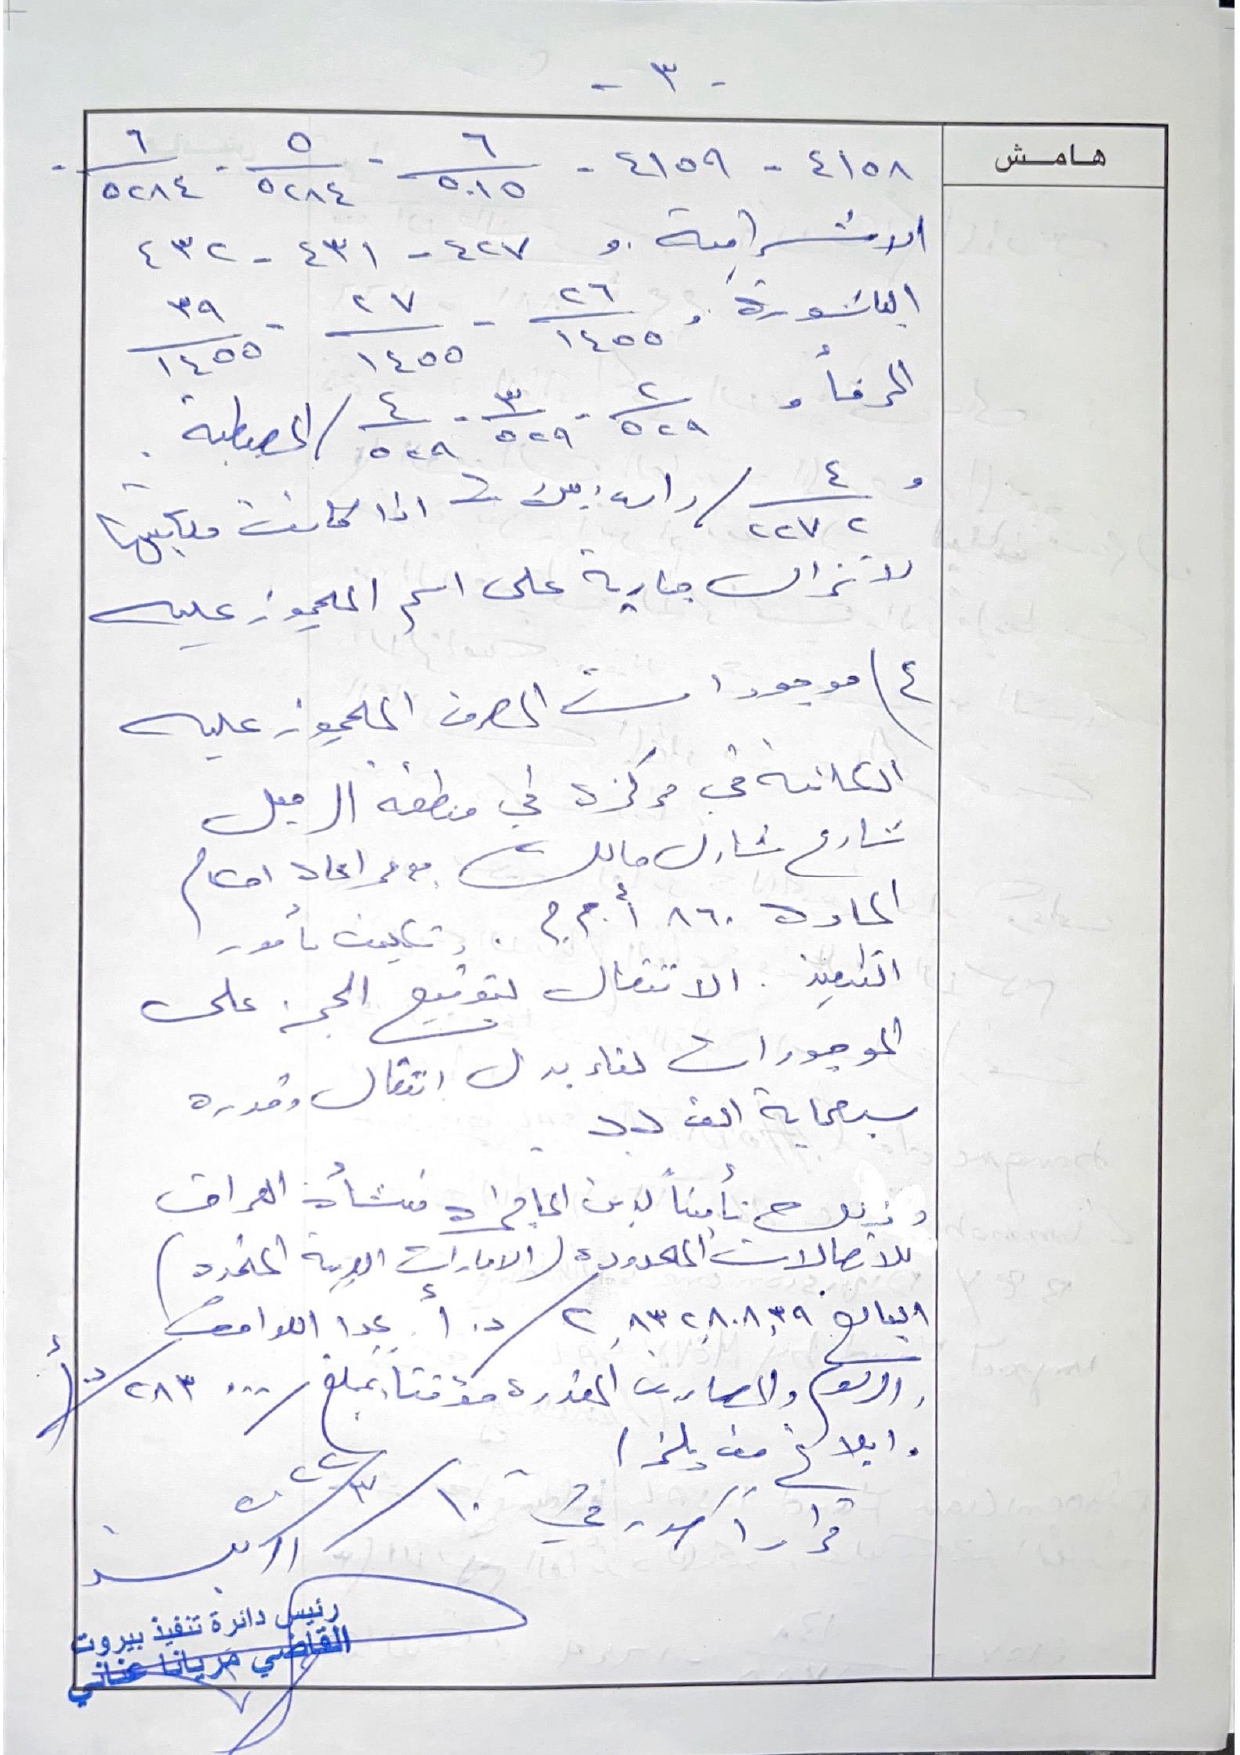 - ٣ -
هامش
٤١٥٨ - ٤١٥٩ - ٦/٥٠١٥ - ٥/٥٢٨٤ - ٦/٥٢٨٤ -
الاشرفية. و ٤٢٧ - ٤٣١ - ٤٣٢
الباشورة و ٢٦/١٤٥٥ - ٢٧/١٤٥٥ - ٣٩/١٤٥٥
المرفأ و ٢/٥٢٩ - ٣/٥٢٩ - ٤/٥٢٩ / المصيطبة.
و ٤/٢٢٧٢ / راس بيروت اذا كانت ملكيتها
لا تزال جارية على اسم المحجوز عليه
٤) موجودات المصرف المحجوز عليه
الكائنة في مركزه في منطقة الرميل
شارع شارل مالك مع مراعاة احكام
المادة ٨٦٠ أ.م.م. وتكليف مأمور
التنفيذ الانتقال لتوقيع الحجز على
الموجودات لقاء بدل انتقال وقدره
سبعماية الف ل.ل
وذلك تأميناً لدين الحاجزة منشأة العراق
للاتصالات المحدودة (الامارات العربية المتحدة)
البالغ ٢,٨٣٢,٨٠٨,٣٩ / د.أ. عدا اللواحق
والرسوم والمصاريف المقدرة مؤقتاً بمبلغ / ٢٨٣٠٠٠ / د.أ
وابلاغ من يلزم
قراراً صدر في ١٠/٣/٢٠٢٢
الرئيسة
رئيس دائرة تنفيذ بيروت
القاضي مريانا عناني